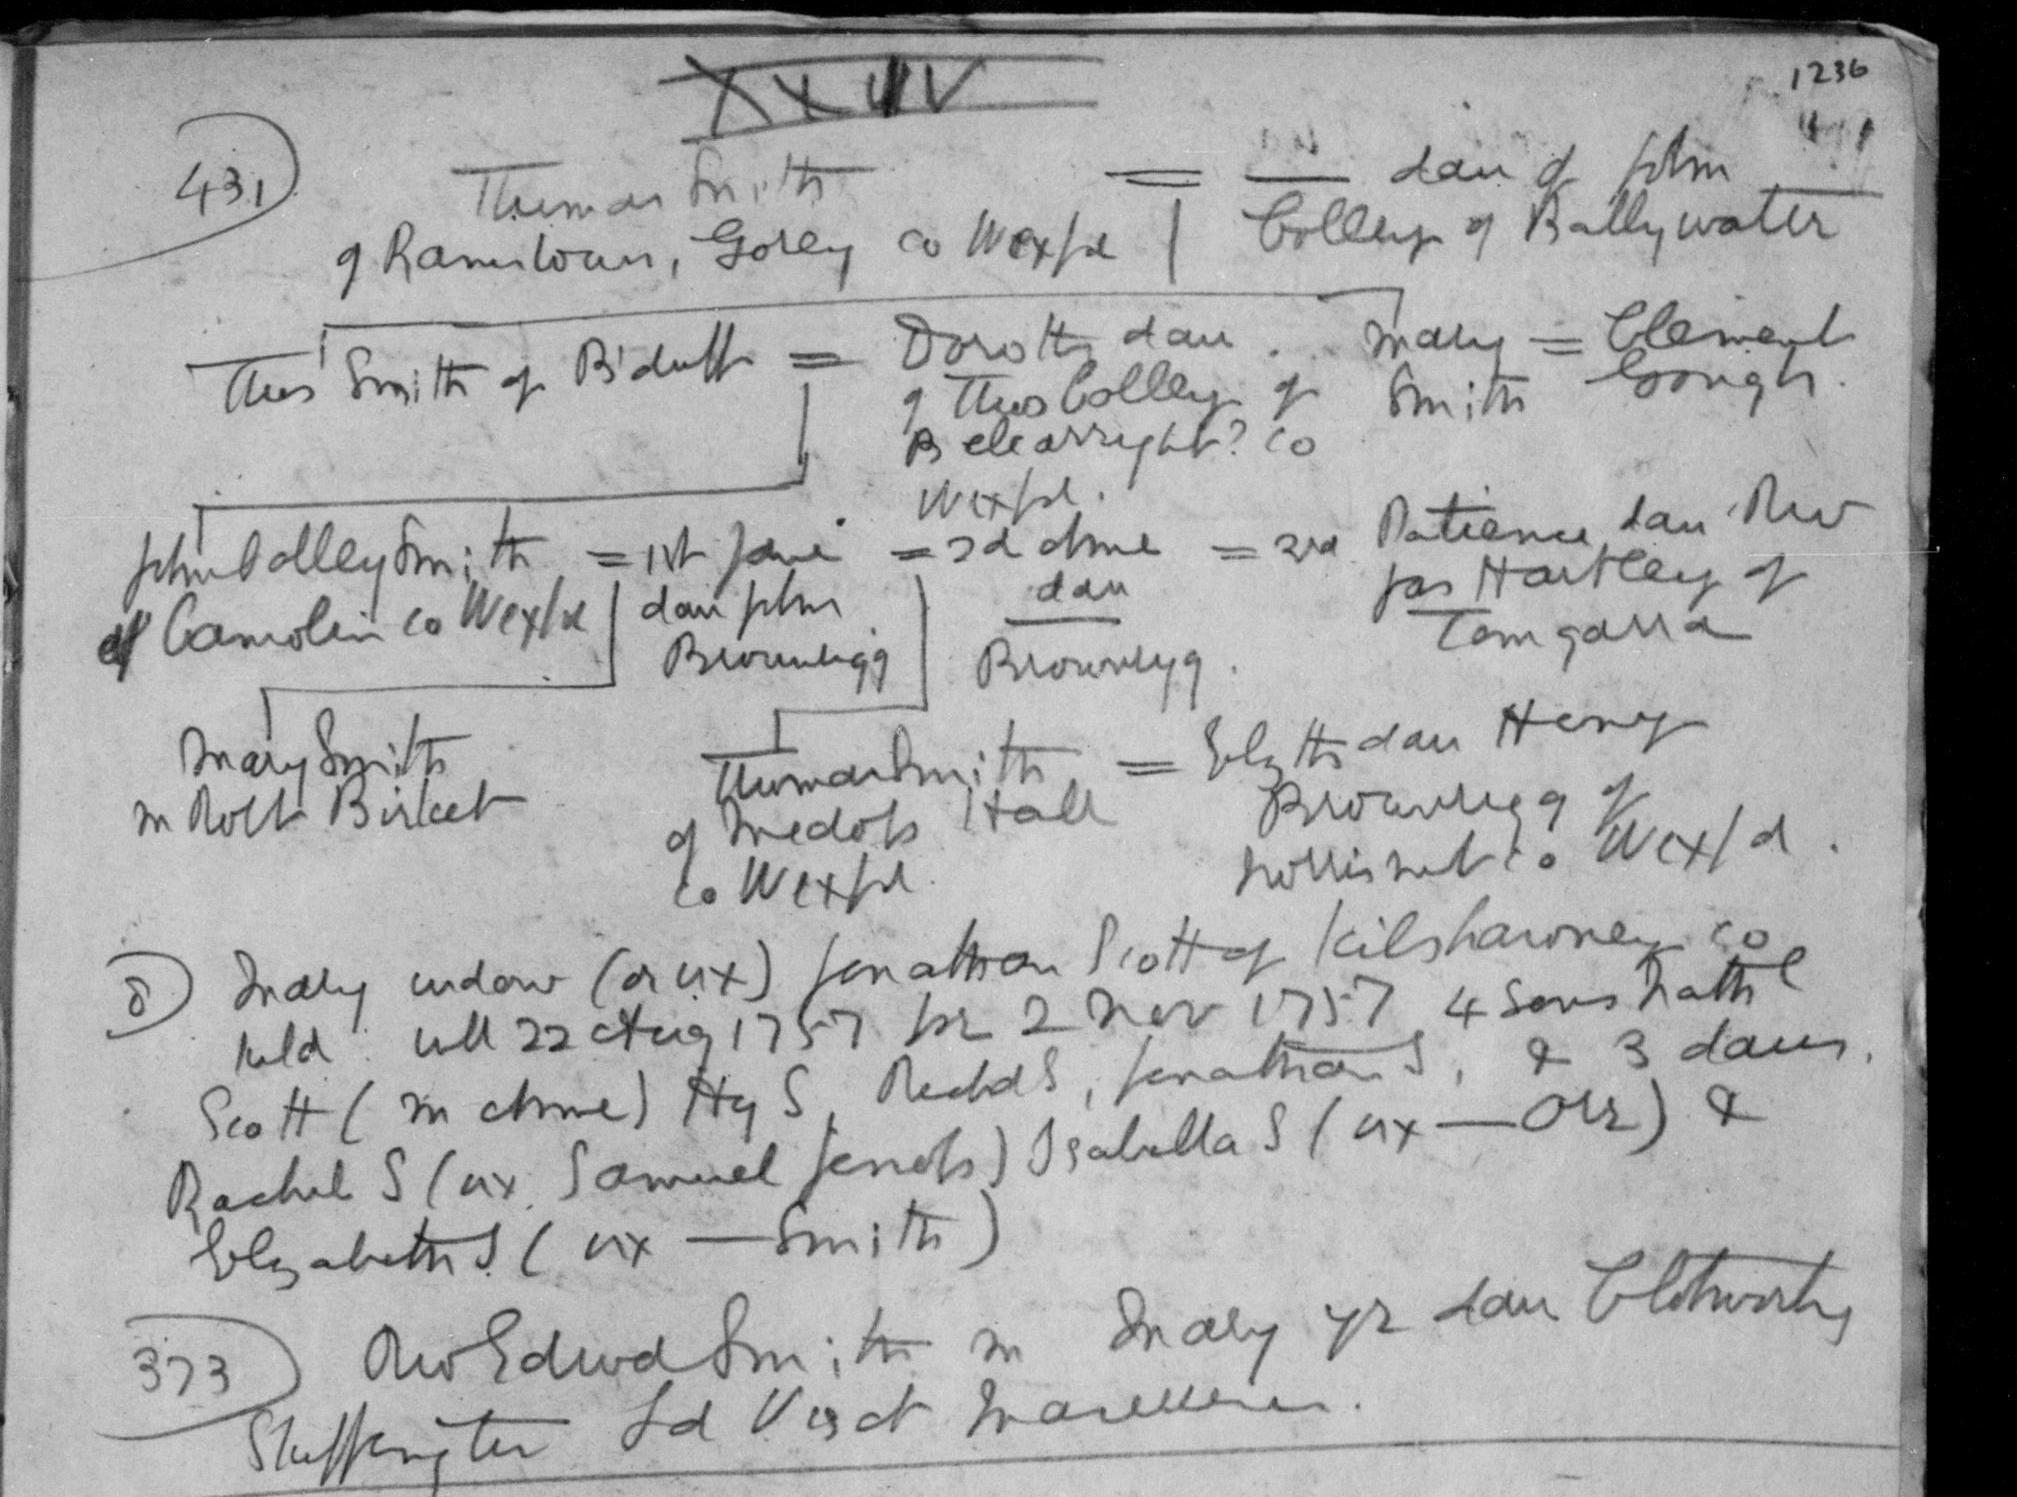 1236
XXIV
431
Thomas Smith = — dau of John
of Ramstown, Gorey co Wexfd Colley of Ballywater
Thos Smith of B'duff = Doroth dau Mary = Clement
of Thos Colley of Smith Gough.
Bclearryht? co
Wexfd.
John Colley Smith = 1st Jane = 2d Anne = 3rd Patience dau Rev
of Camolin co Wexfd dau John dau Jas Hartley of
Brownrigg — Brownrygg. Tomgarra
Mary Smith Thomas Smith = Elzth dau Henry
m Robt Birket of Medops Hall Brownrigg of
co Wexfd. co Wexfd.
8 Mary widow (or ux) Jonathan Scott of Kilshawney co
Kild will 22 Aug 1757 pr 2 Nov 1757 4 sons Nathl
Scott (m Anne) Hy S, Richd S, Jonathan S, & 3 daus.
Rachel S (ux Samuel) Isabella S (ux — Orr) &
Elizabeth S (ux — Smith)
373 Rev Edwd Smith m Mary yr dau Clotworthy
Skeffington Ld Visct Massereene.